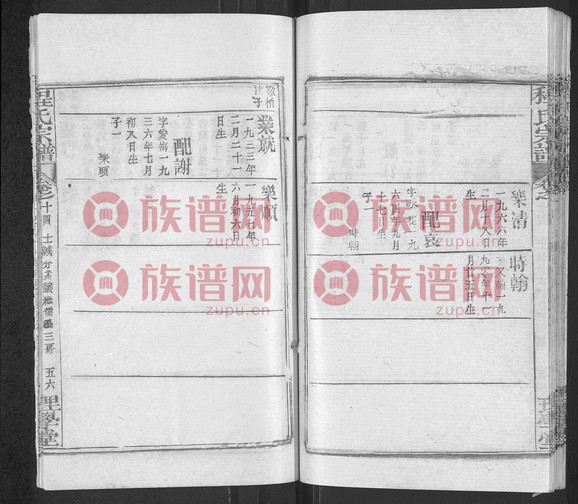 程氏宗譜
樂清
一九六六年
二月十八日
生
配袁
六四年九月
十七日生
子一
時翰
時翰
又名
一九
九
月廿五日生
理學堂
子
業就
一九三三年
二月二十一
日生
配謝
字愛 一九
三六年七月
初八日生
子一
樂順
樂順
一九五七年
六月初六日
生
程氏宗譜
卷之十四
三房
五六
理學堂
族谱网
zupu.cn
族谱网
zupu.cn
族谱网
zupu.cn
族谱网
zupu.cn